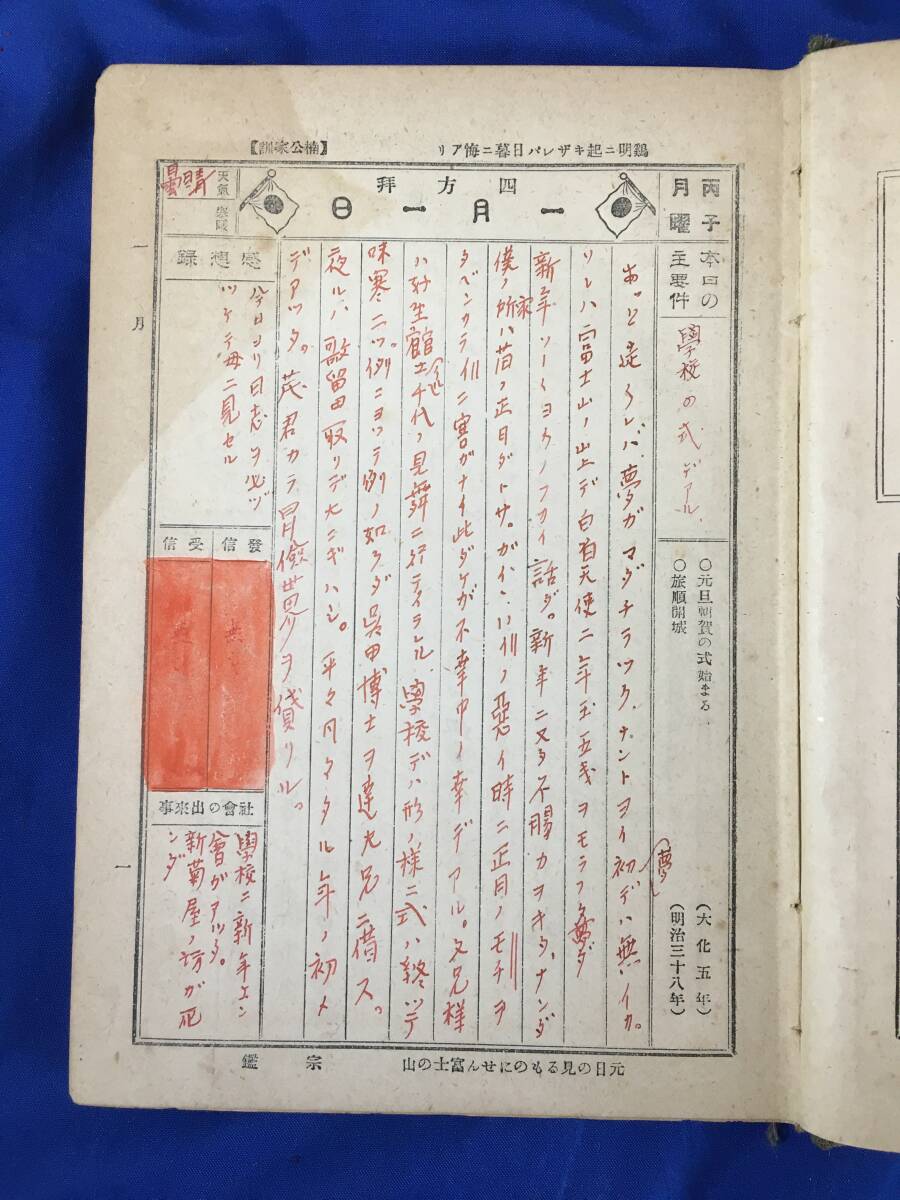 鷄明ニ起キザレバ日暮ニ悔アリ
【楠公家訓】
丙子
月曜
四方拜
一月一日
天氣
寒暖
晴
曇
本日の主要件
學校の式デアル、
〇元旦朝賀の式始まる
(大化五年)
〇旅順開城
(明治三十八年)
夢ガマダチラツク、ナントヨイ初デハ無イカ。
ソレハ富士山ノ山上デ白有天使ニ年玉五戔ヲモラフタ夢ダ
新年ソーソーヨクノフカイ話ダ。新年ニ又タ不腸カヲキタ、ナンダ
僕ノ家所ハ昔ノ正日ダトサ。ガイニ川ノ惡イ時ニ正月ノモチヲ
害ガナイ此ダケガ不幸中ノ幸デアル。父兄様
ハ好生館ヘ士千代ノ見舞ニ行テイラレル、學校デハ形ノ様ニ式ハ終ッテ
例ニヨツテ例ノ如クダ吳田博士ヲ達九兄ニ借ス。
夜ルハ歌留田取リデ大ニギハシ。平々凡々タル年ノ初メ
デアツタ。茂君カラ冒險世界ヲ貸リル。
感想録
今日ヨリ日志ヲ必ヅ
ツケテ毎ニ見セル
發信
受信
社會の出來事
學校ニ新年エン
會ガアツタ。
新菊屋ノ坊ガ死
ンダ
一月
一
元日の見るものにせん富士の山
宗鑑